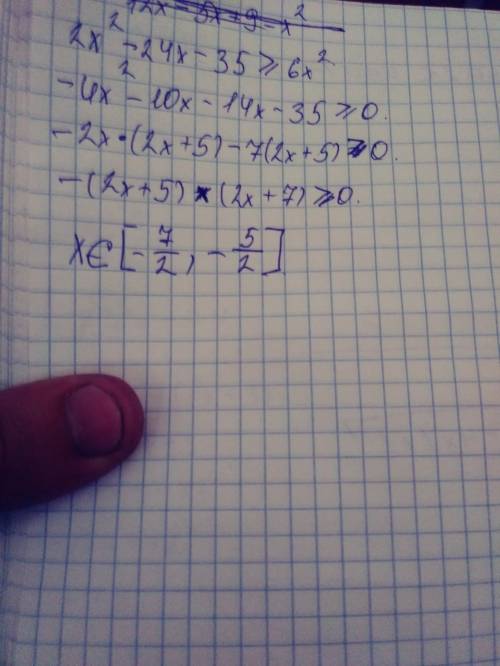 2x² - 24x - 35 ≥ 6x²
-4x² - 10x - 14x - 35 ≥ 0.
-2x·(2x+5) - 7(2x+5) ≥ 0.
-(2x+5) × (2x+7) ≥ 0.
x∈[-7/2, -5/2]